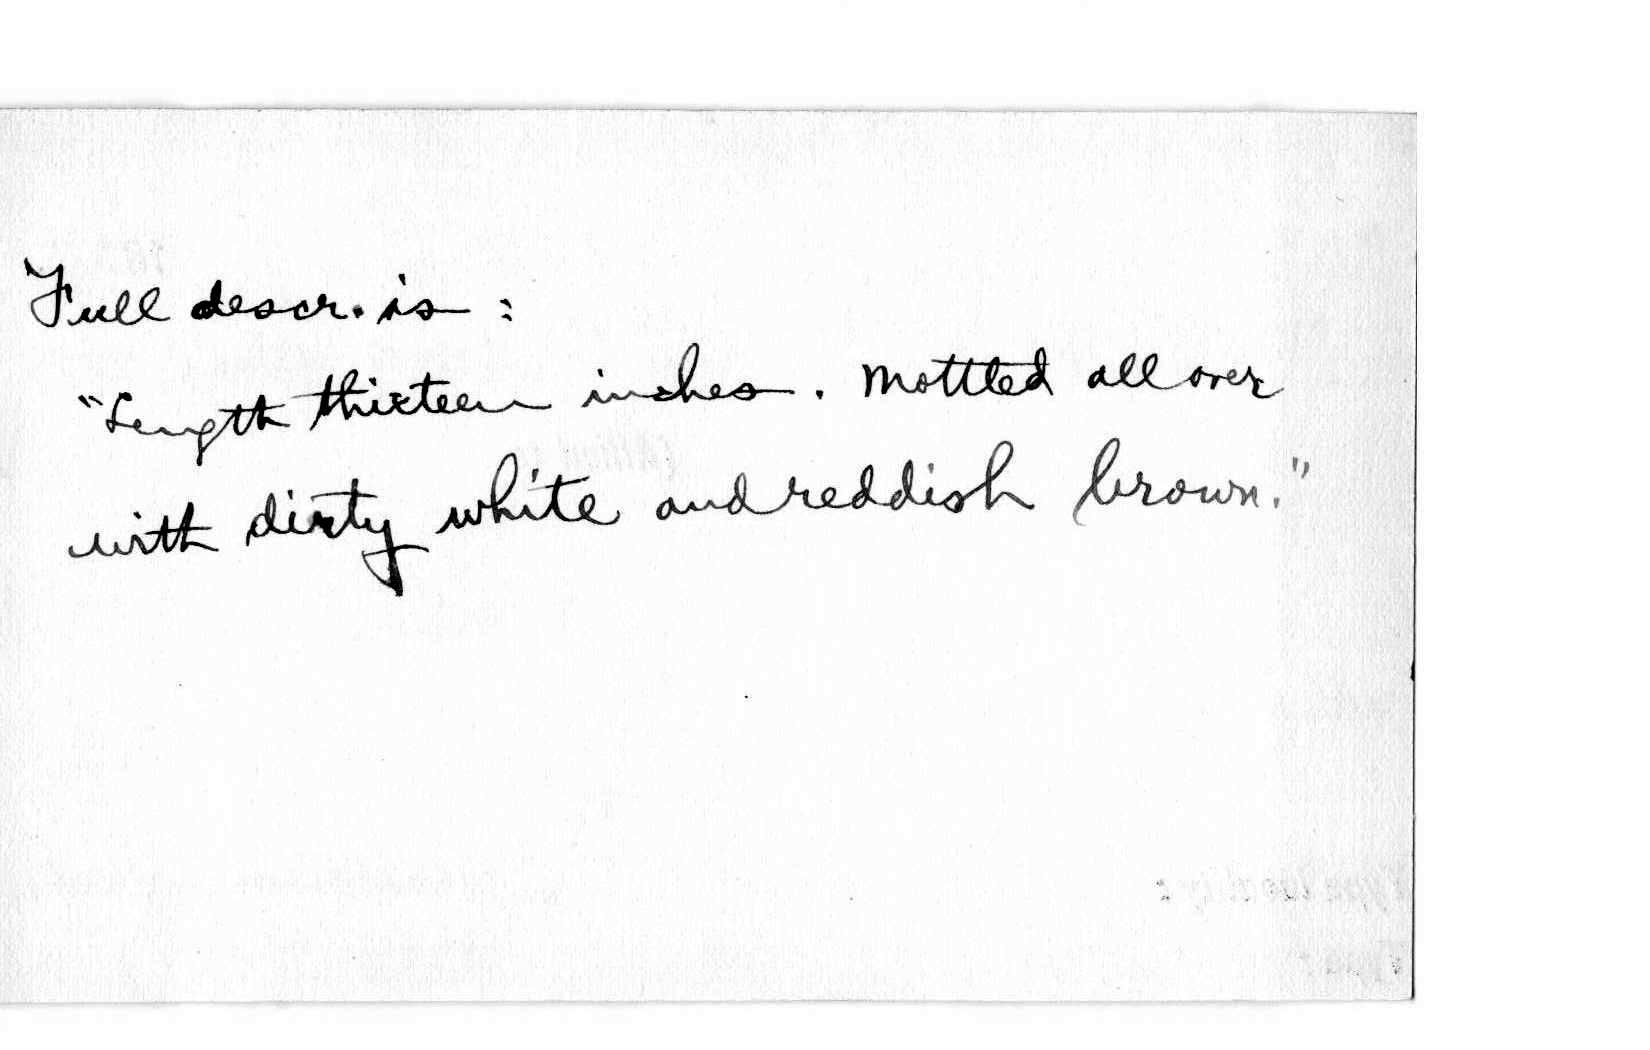 Full descr. is :
"Length thirteen inches. Mottled all over
with dirty white and reddish brown."